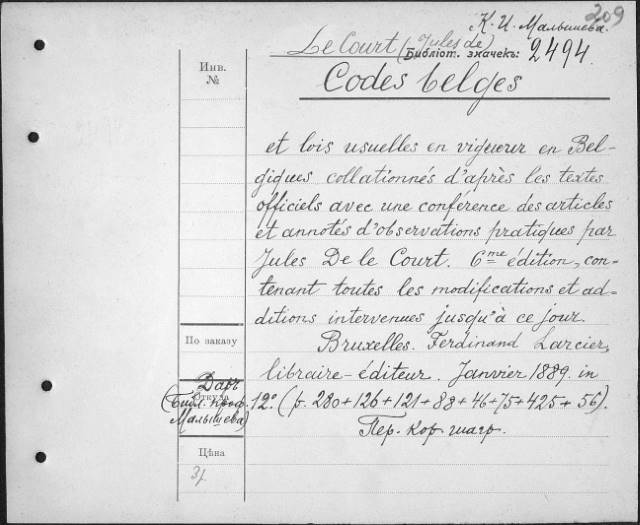 209
К. И. Малышева.
Le Court (Jules de)
Библіот. значекъ: 2494.
Инв.
№
Codes belges
et lois usuelles en vigueur en Bel-
giques collationnés d'après les textes
officiels avec une conférence des articles
et annotés d'observations pratiques par
Jules De le Court. 6me édition, con-
tenant toutes les modifications et ad-
ditions intervenues jusqu'à ce jour.
По заказу
Bruxelles. Ferdinand Larcier,
libraire-éditeur. Janvier 1889. in
Даръ
Откуда
(Библ. проф.
Малышева)
12º. (p. 280+126+121+88+46+75+425+56).
Пер. кор. шагр.
Цѣна
3/.